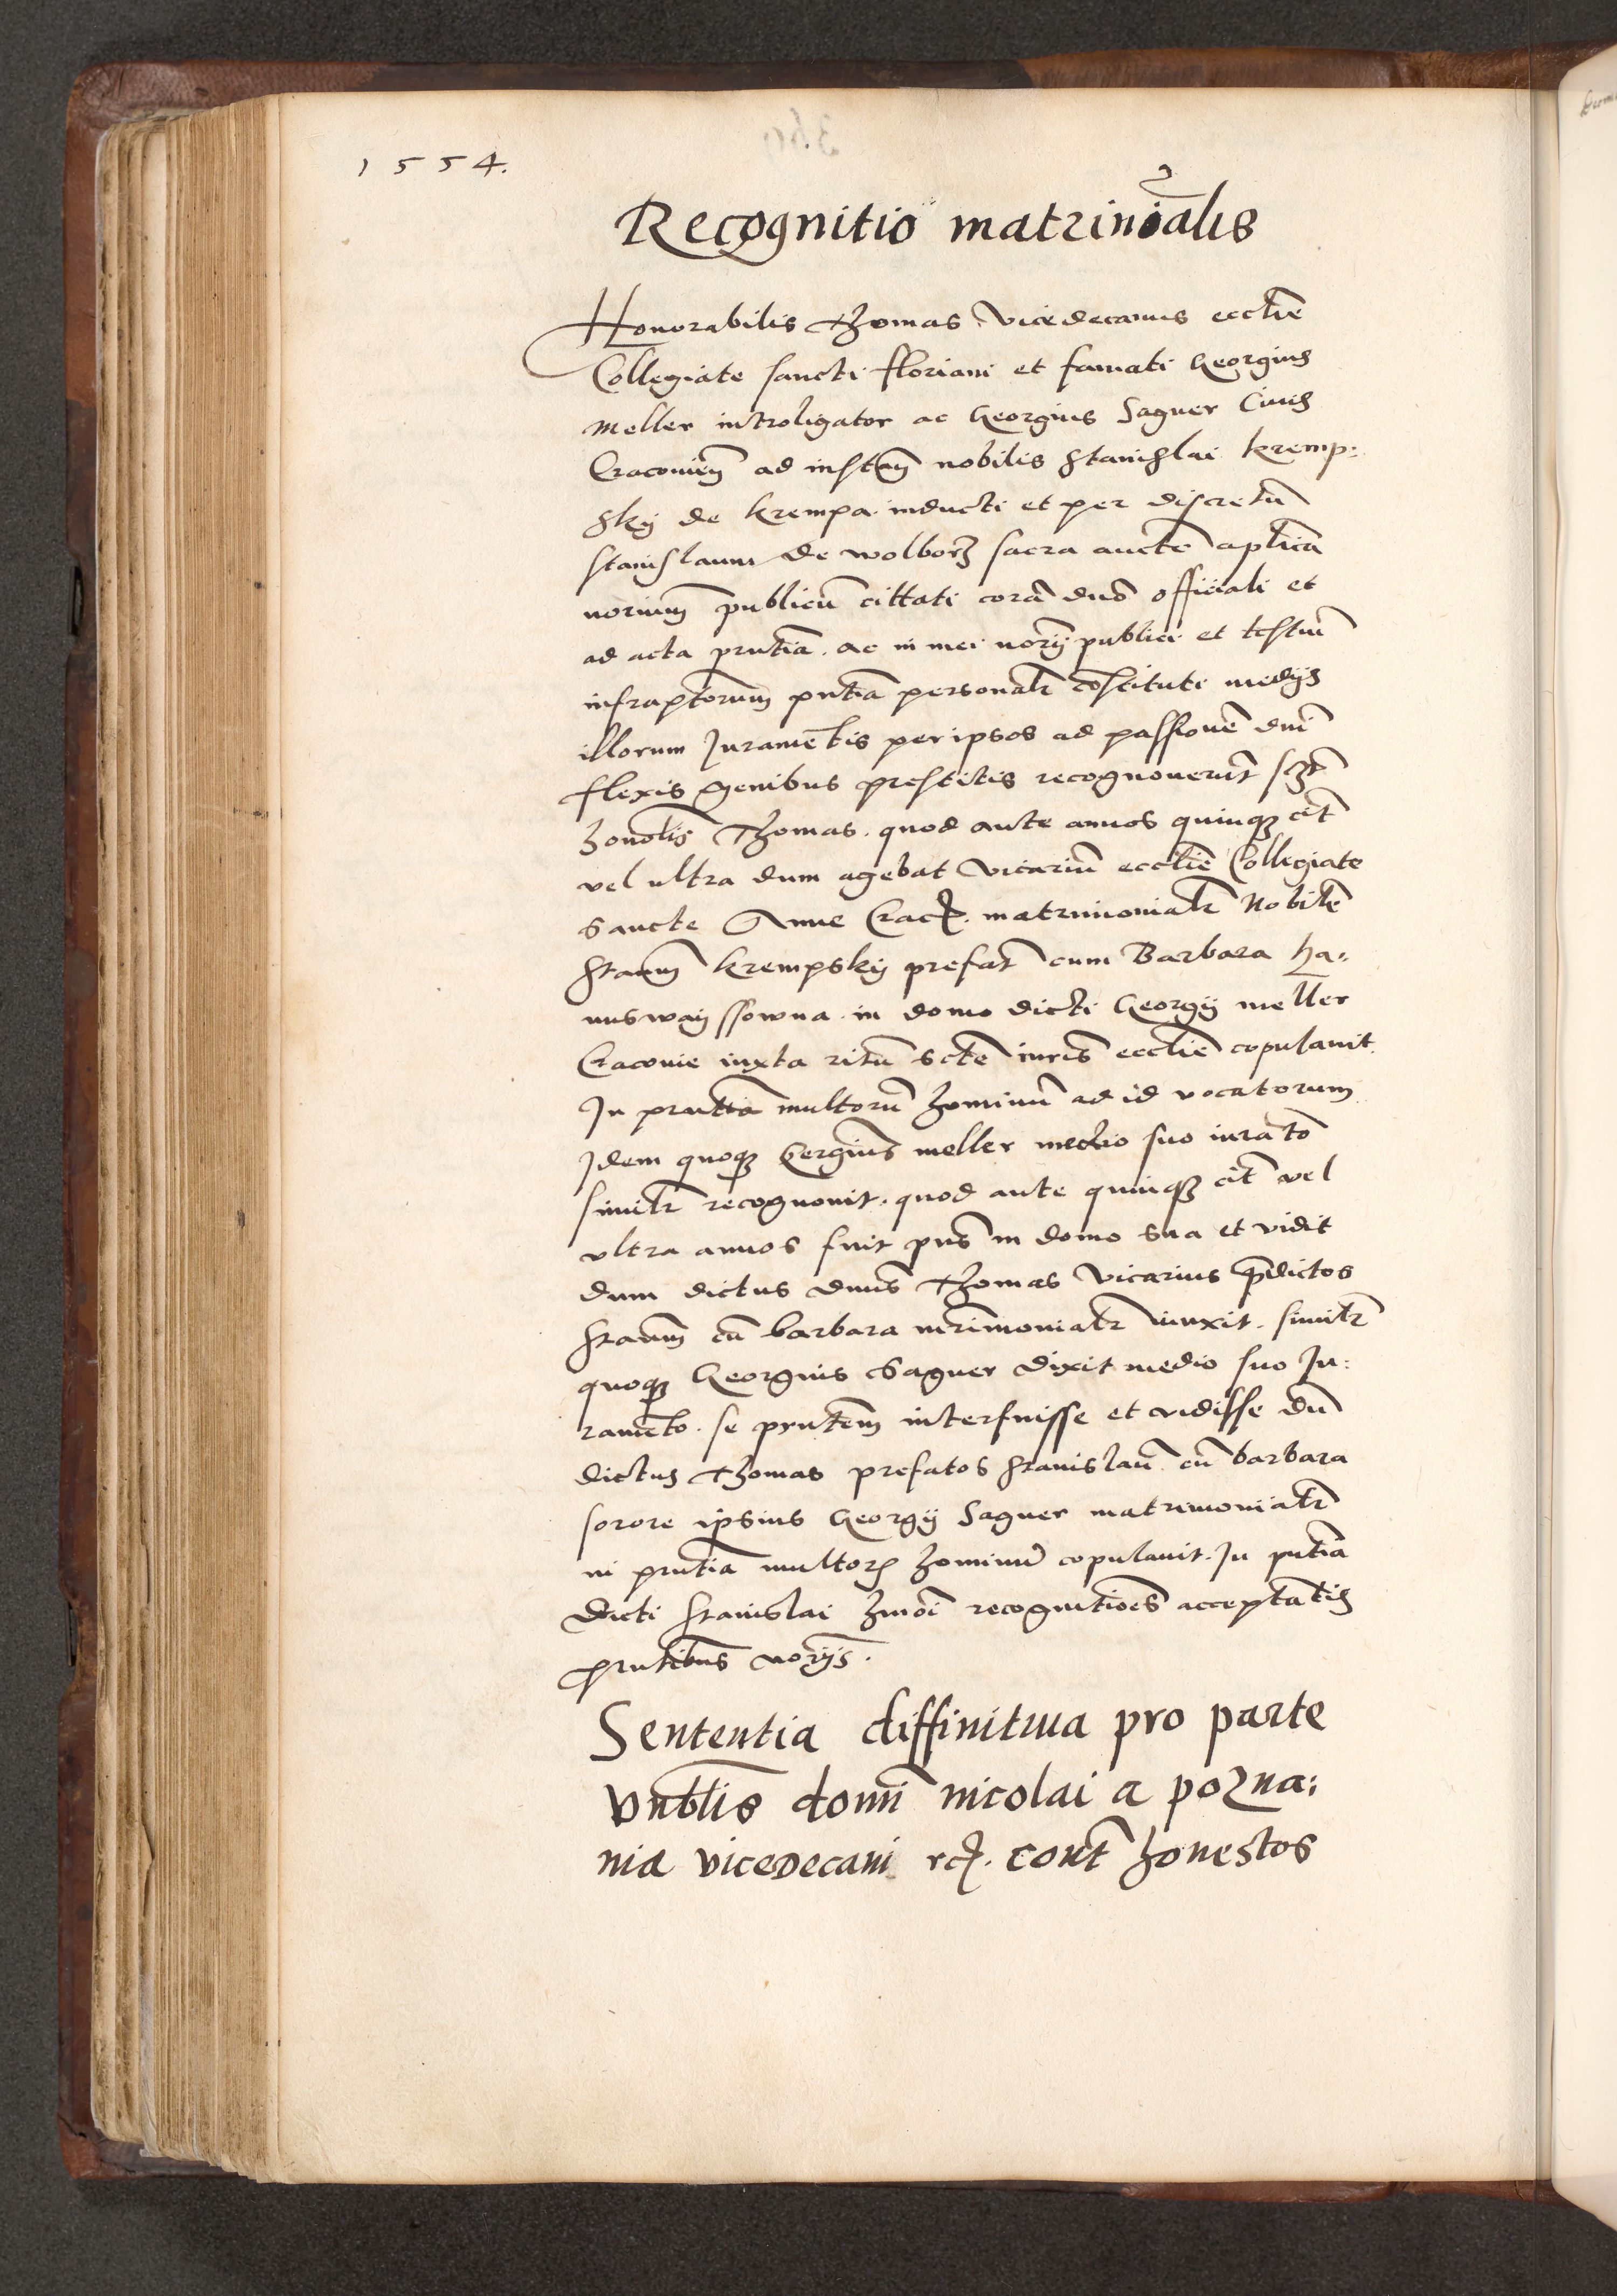 1554.
Recognitio matrinialis
Honorabilis Thomas Vicedecanus ecclie
Collegiate sancti floriani et famati Georgius
Meller introligator ac Georgius Sagner Ciues
Cracovien ad instan nobilis Stanislai Kremp:
sky de Krempa inducti et per discretu
Stanislaum de wolborz sacra aucte aplica
norium publicu cittati cora dno officiali et
ad acta pruntia. ac in mei nory publici et testiu
infraptorum pntia personalr costituti medys
illorum Juramentis per ipsos ad passione dni
flexis genibus prestitis recognouerut szt
honolis Thomas. quod ante annos quinqz cit
vel ultra dum agebat vicariu ecclie Collegiate
Sancte Anne Crac. matrimonialr Nobile
Stanm Krempsky prefat cum Barbara Ha:
nuswayssowna. in domo dicti Georgy meller
Cracovie iuxta ritu scte ecclie copulauit.
In pruntia multoru hominu ad id vocatorum
Idem quoqz Gergius meller medio suo iurato
similr recognouit. quod ante quinqz cit vel
vltra annos fuit pns in domo sua et vidit
dum dictus dnus Thomas Vicarius pdictos
Stanm cu barbara mrimonialr iunxit. similr
quoqz Georgius Sagner dixit medio suo Ju:
ramento. se prutem interfuisse et vidisse du
dictus Thomas prefatos Stanislau cu barbara
sorore ipsius Georgy Sagner matrimonialr
in pruntia multor hominu copulauit. In pntia
dicti Stanislai hmoi recognitioes acceptatis
prutibus norys.
Sententia diffinitiua pro parte
Vnblis domi nicolai a pozna:
nia vicedecani rc. cont honestos